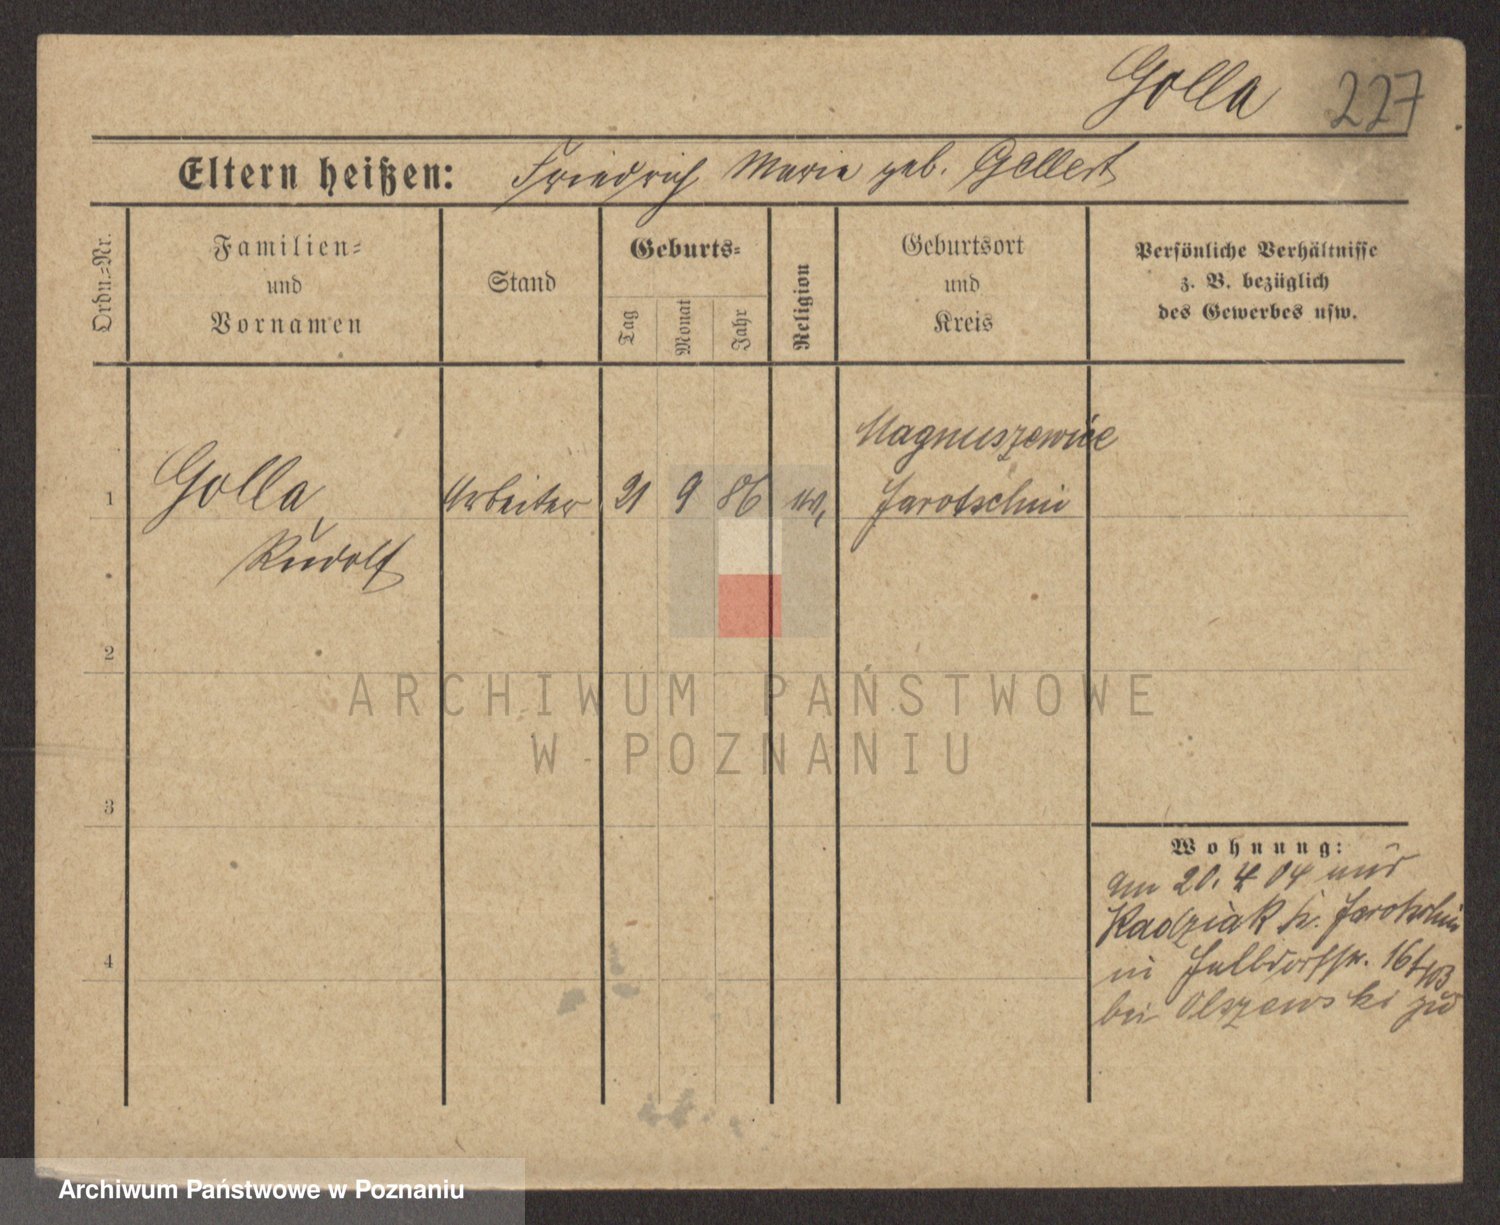 Golla 227
Eltern heißen: Friedrich Marie geb. Gellert
Ordn.=Nr.
Familien=
und
Vornamen
Stand
Geburts=
Tag
Monat
Jahr
Religion
Geburtsort
und
Kreis
Persönliche Verhältnisse
z. B. bezüglich
des Gewerbes usw.
Magnuszewice
1 Golla Arbeiter 21 9 86 Jarotschin
Rudolf
2
3
4
Wohnung:
am 20. 4 04
Radziak Jarotschin
in 16
bei Olszewski zu
ARCHIWUM PAŃSTWOWE
W POZNANIU
Archiwum Państwowe w Poznaniu